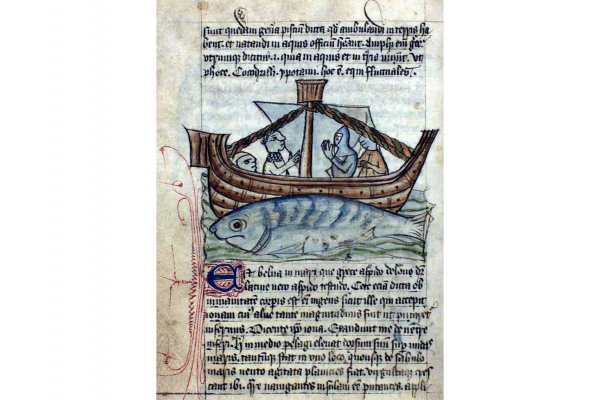 sunt quedam gen̄a pisciū dicta qd̓ ambulandi in terris ha
bent. et natandi in aquis officiū Amphi em̄ gr̄ce
dicitur .i. quia in aquis et in t̓ris uiuūt. vt
phoce. Cocodrilli. ypotami. hoc ē. equi fluctuales.
Est belua in mari que grece aspido delone dr̄
latine vero aspido testudo. Cete eciā dicta ob
inmanitatem corpis est en̄ ingens sicut ille qui excepit
ionam cui᷒ alu᷒ tante magnitudinis fuit ut putaret᷑
infernus. Dicente ip̄o iona. Exaudiuit me de uentre
inferi. H̄ in medio pelagi eleuat dorsum suū sup̄ undas
maris. tantūq̨ stat in vno loco. quousq̨ de sabulo
maris vento agitata planicies fiat. virgultaq̨ cres
cant ibi. nauigantes insulam eē putantes. appli